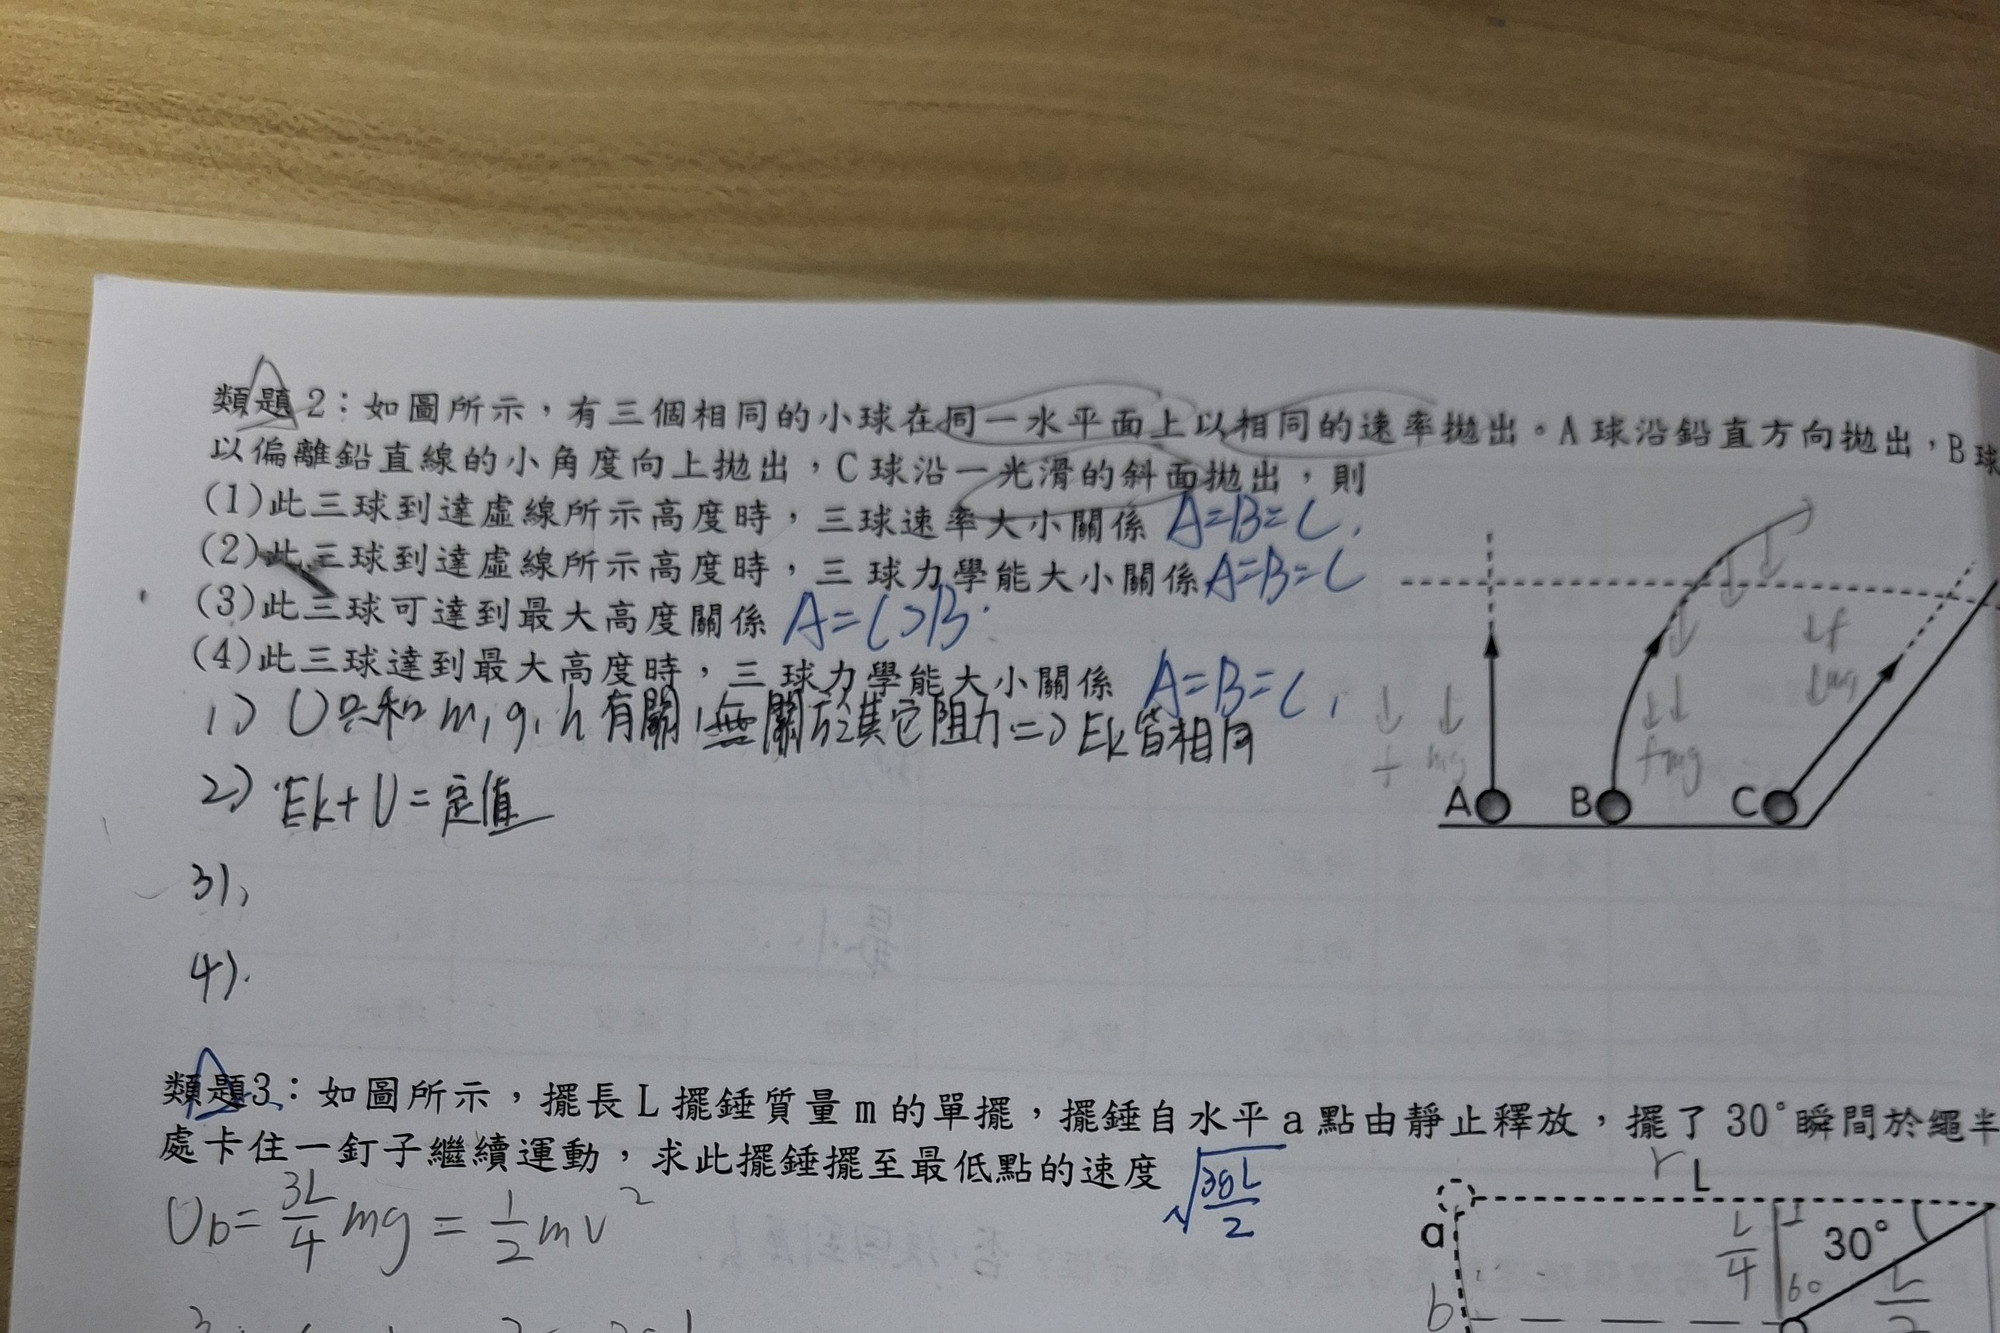 類題2：如圖所示，有三個相同的小球在同一水平面上以相同的速率拋出。A球沿鉛直方向拋出，B球
以偏離鉛直線的小角度向上拋出，C球沿一光滑的斜面拋出，則
(1)此三球到達虛線所示高度時，三球速率大小關係 A=B=C,
(2)此三球到達虛線所示高度時，三球力學能大小關係 A=B=C
(3)此三球可達到最大高度關係 A=C>B
(4)此三球達到最大高度時，三球力學能大小關係 A=B=C,
1) U只和m,g,h有關,無關於其它阻力=>Ek皆相同
2) Ek+U=定值
3),
4).
f mg
f mg
↓f
↓mg
A B C
類題3：如圖所示，擺長L擺錘質量m的單擺，擺錘自水平a點由靜止釋放，擺了30°瞬間於繩半
處卡住一釘子繼續運動，求此擺錘擺至最低點的速度 √(3gL/2)
Ub=3L/4 mg=1/2 mv²
r L
a
L/4
30°
60
b